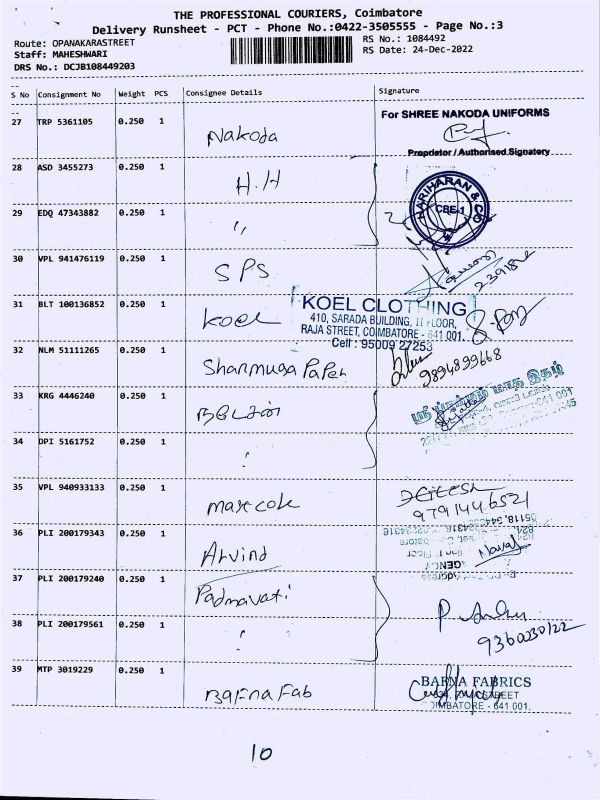 THE PROFESSIONAL COURIERS, Coimbatore
Delivery Runsheet - PCT - Phone No.:0422-3505555 - Page No.:3
Route: OPANAKARASTREET
Staff: MAHESHWARI
DRS No.: DCJB108449203
RS No.: 1084492
RS Date: 24-Dec-2022
S No Consignment No Weight PCS Consignee Details Signature
27 TRP 5361105 0.250 1 Nakoda
For SHREE NAKODA UNIFORMS
Proprietor / Authorised Signatory
28 ASD 3455273 0.250 1 H.H
HARIHARAN & CO
CBE-1
29 EDQ 47343882 0.250 1 "
30 VPL 941476119 0.250 1 SPS
31 BLT 100136852 0.250 1 Koel
KOEL CLOTHING
410, SARADA BUILDING, II FLOOR,
RAJA STREET, COIMBATORE - 641 001.
Cell : 95009 27253
32 NLM 51111265 0.250 1 Shanmuga Paper
9894899668
33 KRG 4446240 0.250 1 நடேசன்
34 DPI 5161752 0.250 1 "
35 VPL 940933133 0.250 1 mascot
9791446521
36 PLI 200179343 0.250 1 Arvind
37 PLI 200179240 0.250 1 Padmavati
38 PLI 200179561 0.250 1 "
9360230122
39 MTP 3019229 0.250 1 Bafna Fab
BAFNA FABRICS
COIMBATORE - 641 001.
10